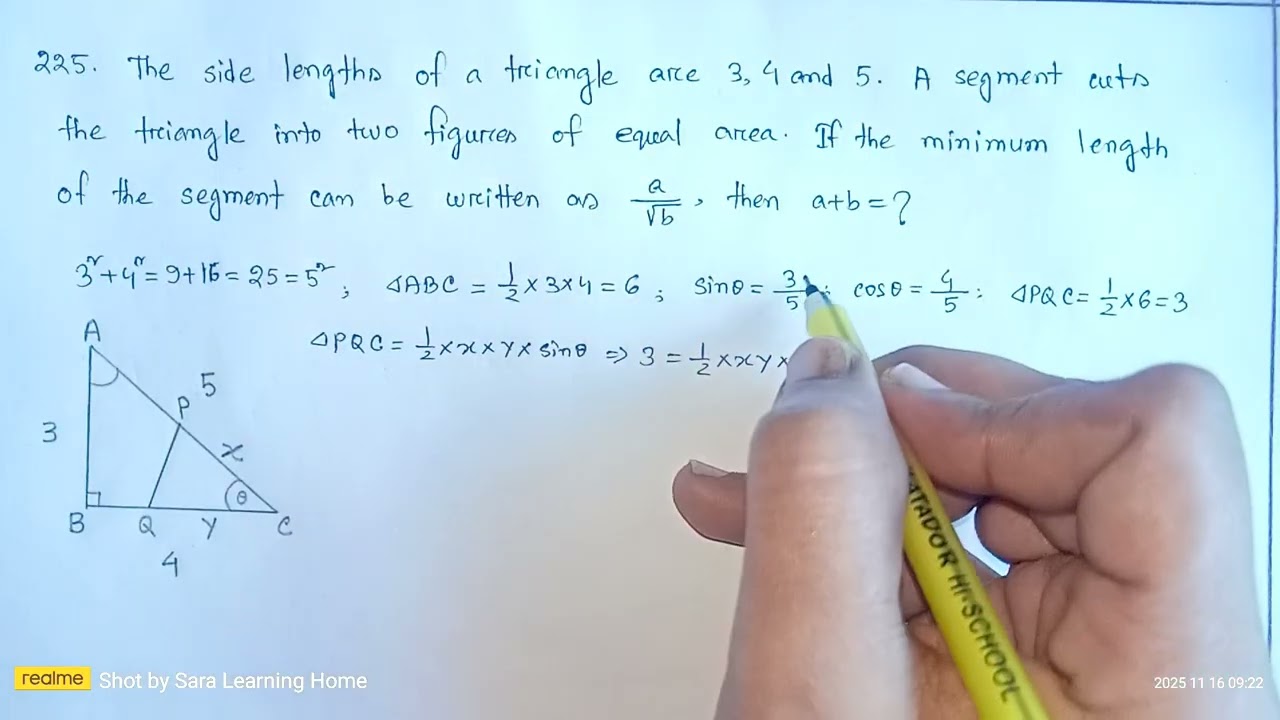 225. The side lengths of a triangle are 3, 4 and 5. A segment cuts
the triangle into two figures of equal area. If the minimum length
of the segment can be written as a/√b, then a+b=?
3²+4²=9+16=25=5²; △ABC = 1/2×3×4=6; sinθ=3/5; cosθ=4/5; △PQC=1/2×6=3
△PQC = 1/2×x×y×sinθ ⇒ 3 = 1/2×xy×
A
5
P
3
x
θ
B
Q
y
C
4
MATADOR HI-SCHOOL
realme Shot by Sara Learning Home
2025 11 16 09:22